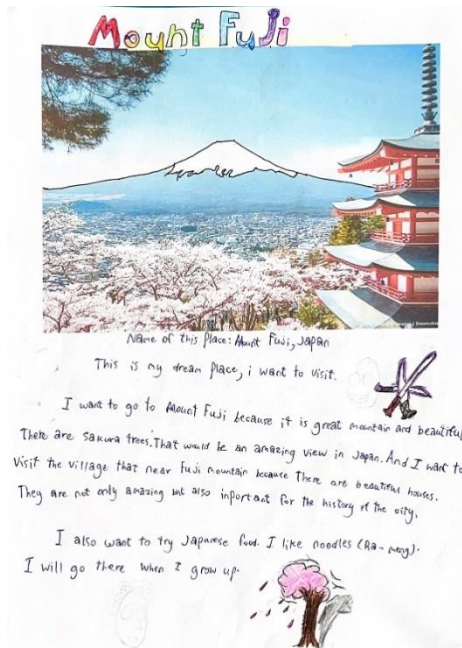 Mount Fuji
Name of this place: Mount Fuji, Japan
This is my dream place, i want to visit.
I want to go to Mount Fuji because it is great mountain and beautiful
There are sakura trees. That would be an amazing view in Japan. And I want to
Visit the village that near Fuji mountain because There are beautiful houses.
They are not only amazing but also inportant for the history of the city.
I also want to try Japanese food. I like noodles (Ra-meng).
I will go there when I grow up.